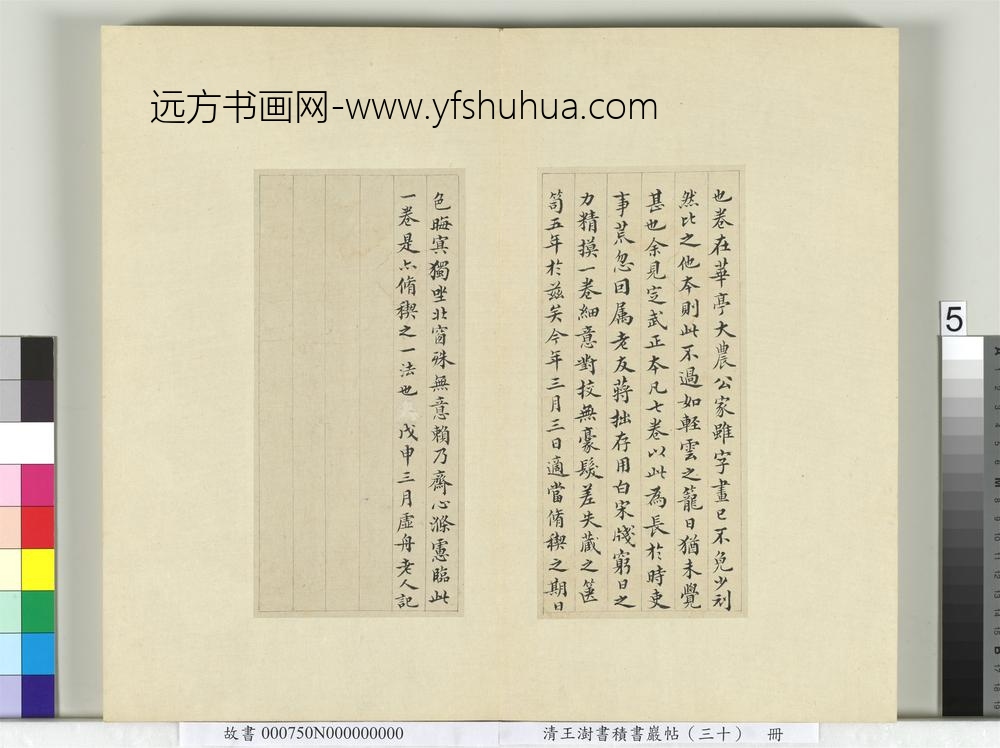 远方书画网-www.yfshuhua.com
也卷在華亭大農公家雖字畫已不免少刓
然比之他本則此不過如輕雲之籠日猶未覺
甚也余見定武正本凡七卷以此為長於時吏
事荒忽回属老友蔣拙存用白宋牋窮日之
力精摸一卷細意對挍無豪髮差失藏之篋
笥五年於兹矣今年三月三日適當脩禊之期日
色晦寞獨坐北窗殊無意賴乃齋心滌慮臨此
一卷是亦脩禊之一法也 戊申三月虛舟老人記
5
故書 000750N000000000
清王澍書積書巖帖（三十） 冊